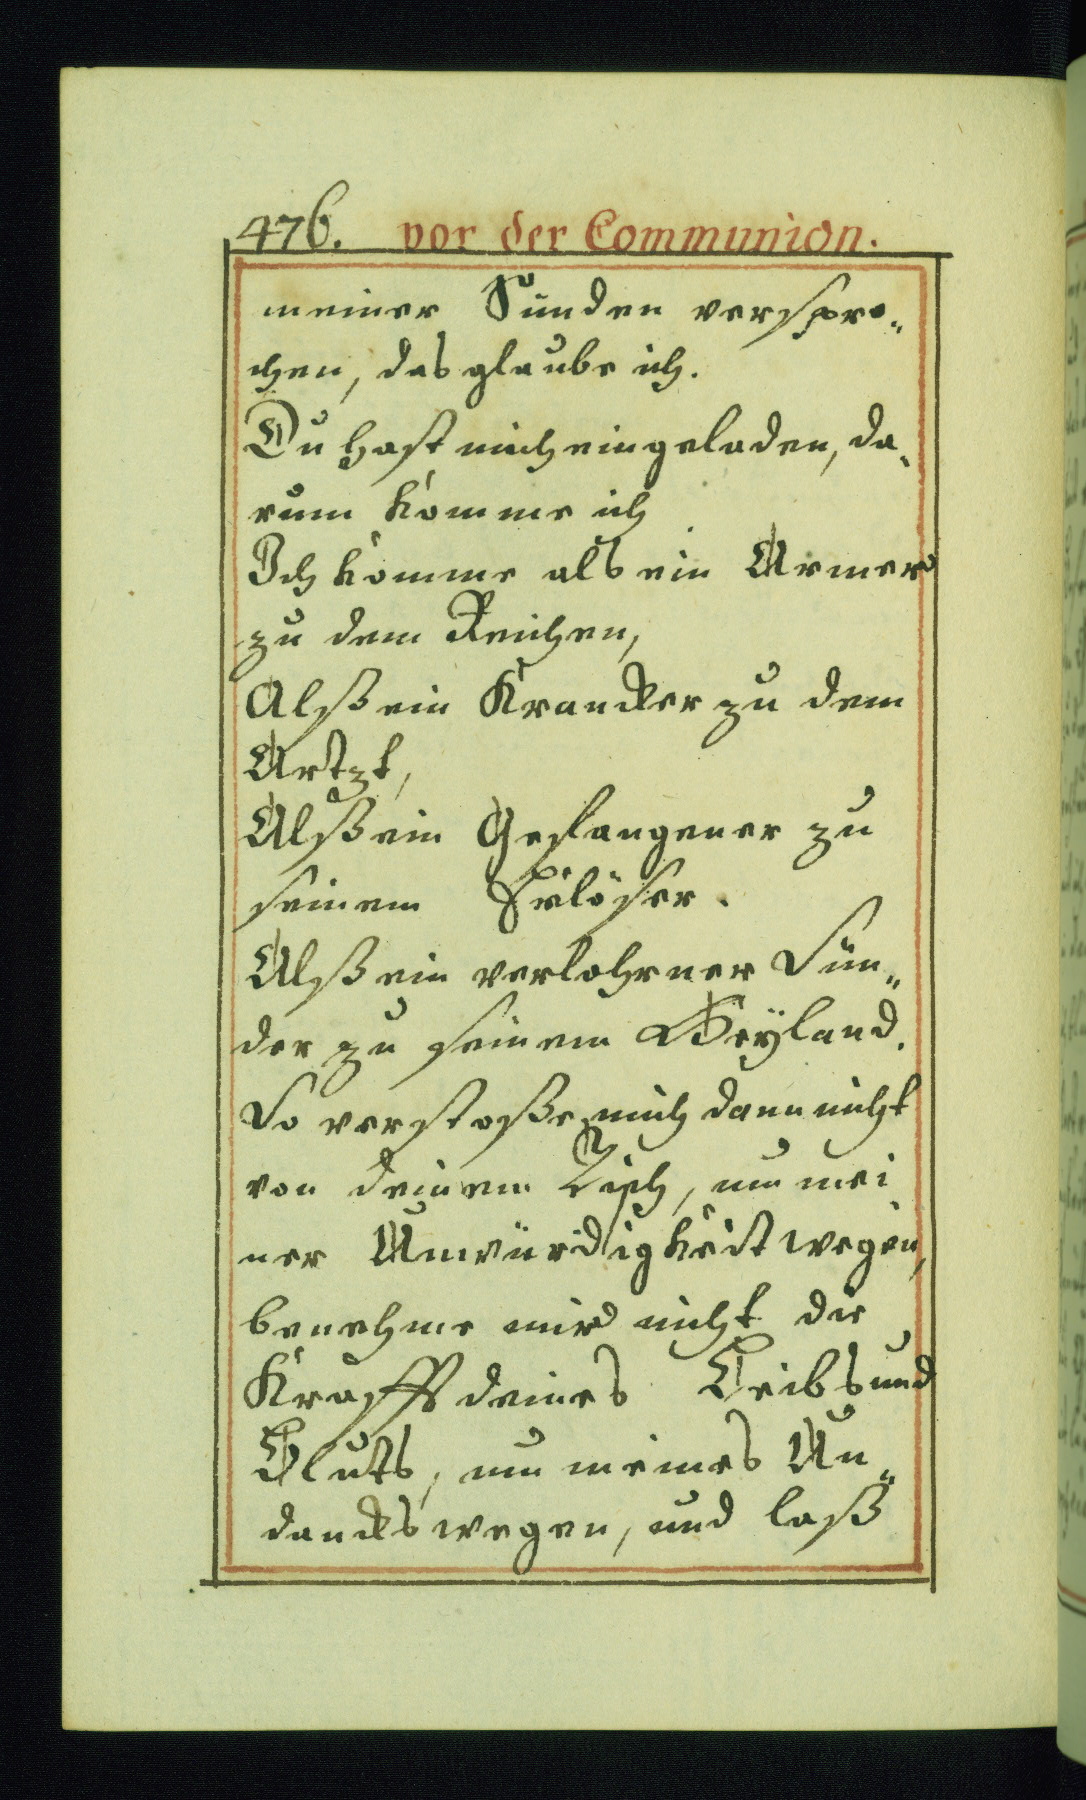 476. vor der Communion.
meiner Sünden verspro„
chen, das glaube ich.
Du hast mich eingeladen, da„
rum komme ich
Ich komme als ein Armer
zu dem Reichen,
Alß ein Krancker zu dem
Artzt,
Alß ein Gefangener zu
seinem Erlöser.
Alß ein verlohrner Sün„
der zu seinem Heÿland.
So verstoße mich dann nicht
von deinem Tisch, um mei
ner Unwürdigkeit wegen,
benehme mir nicht die
Krafft deines Leibs und
Bluts, um meines Un„
dancks wegen, und laß